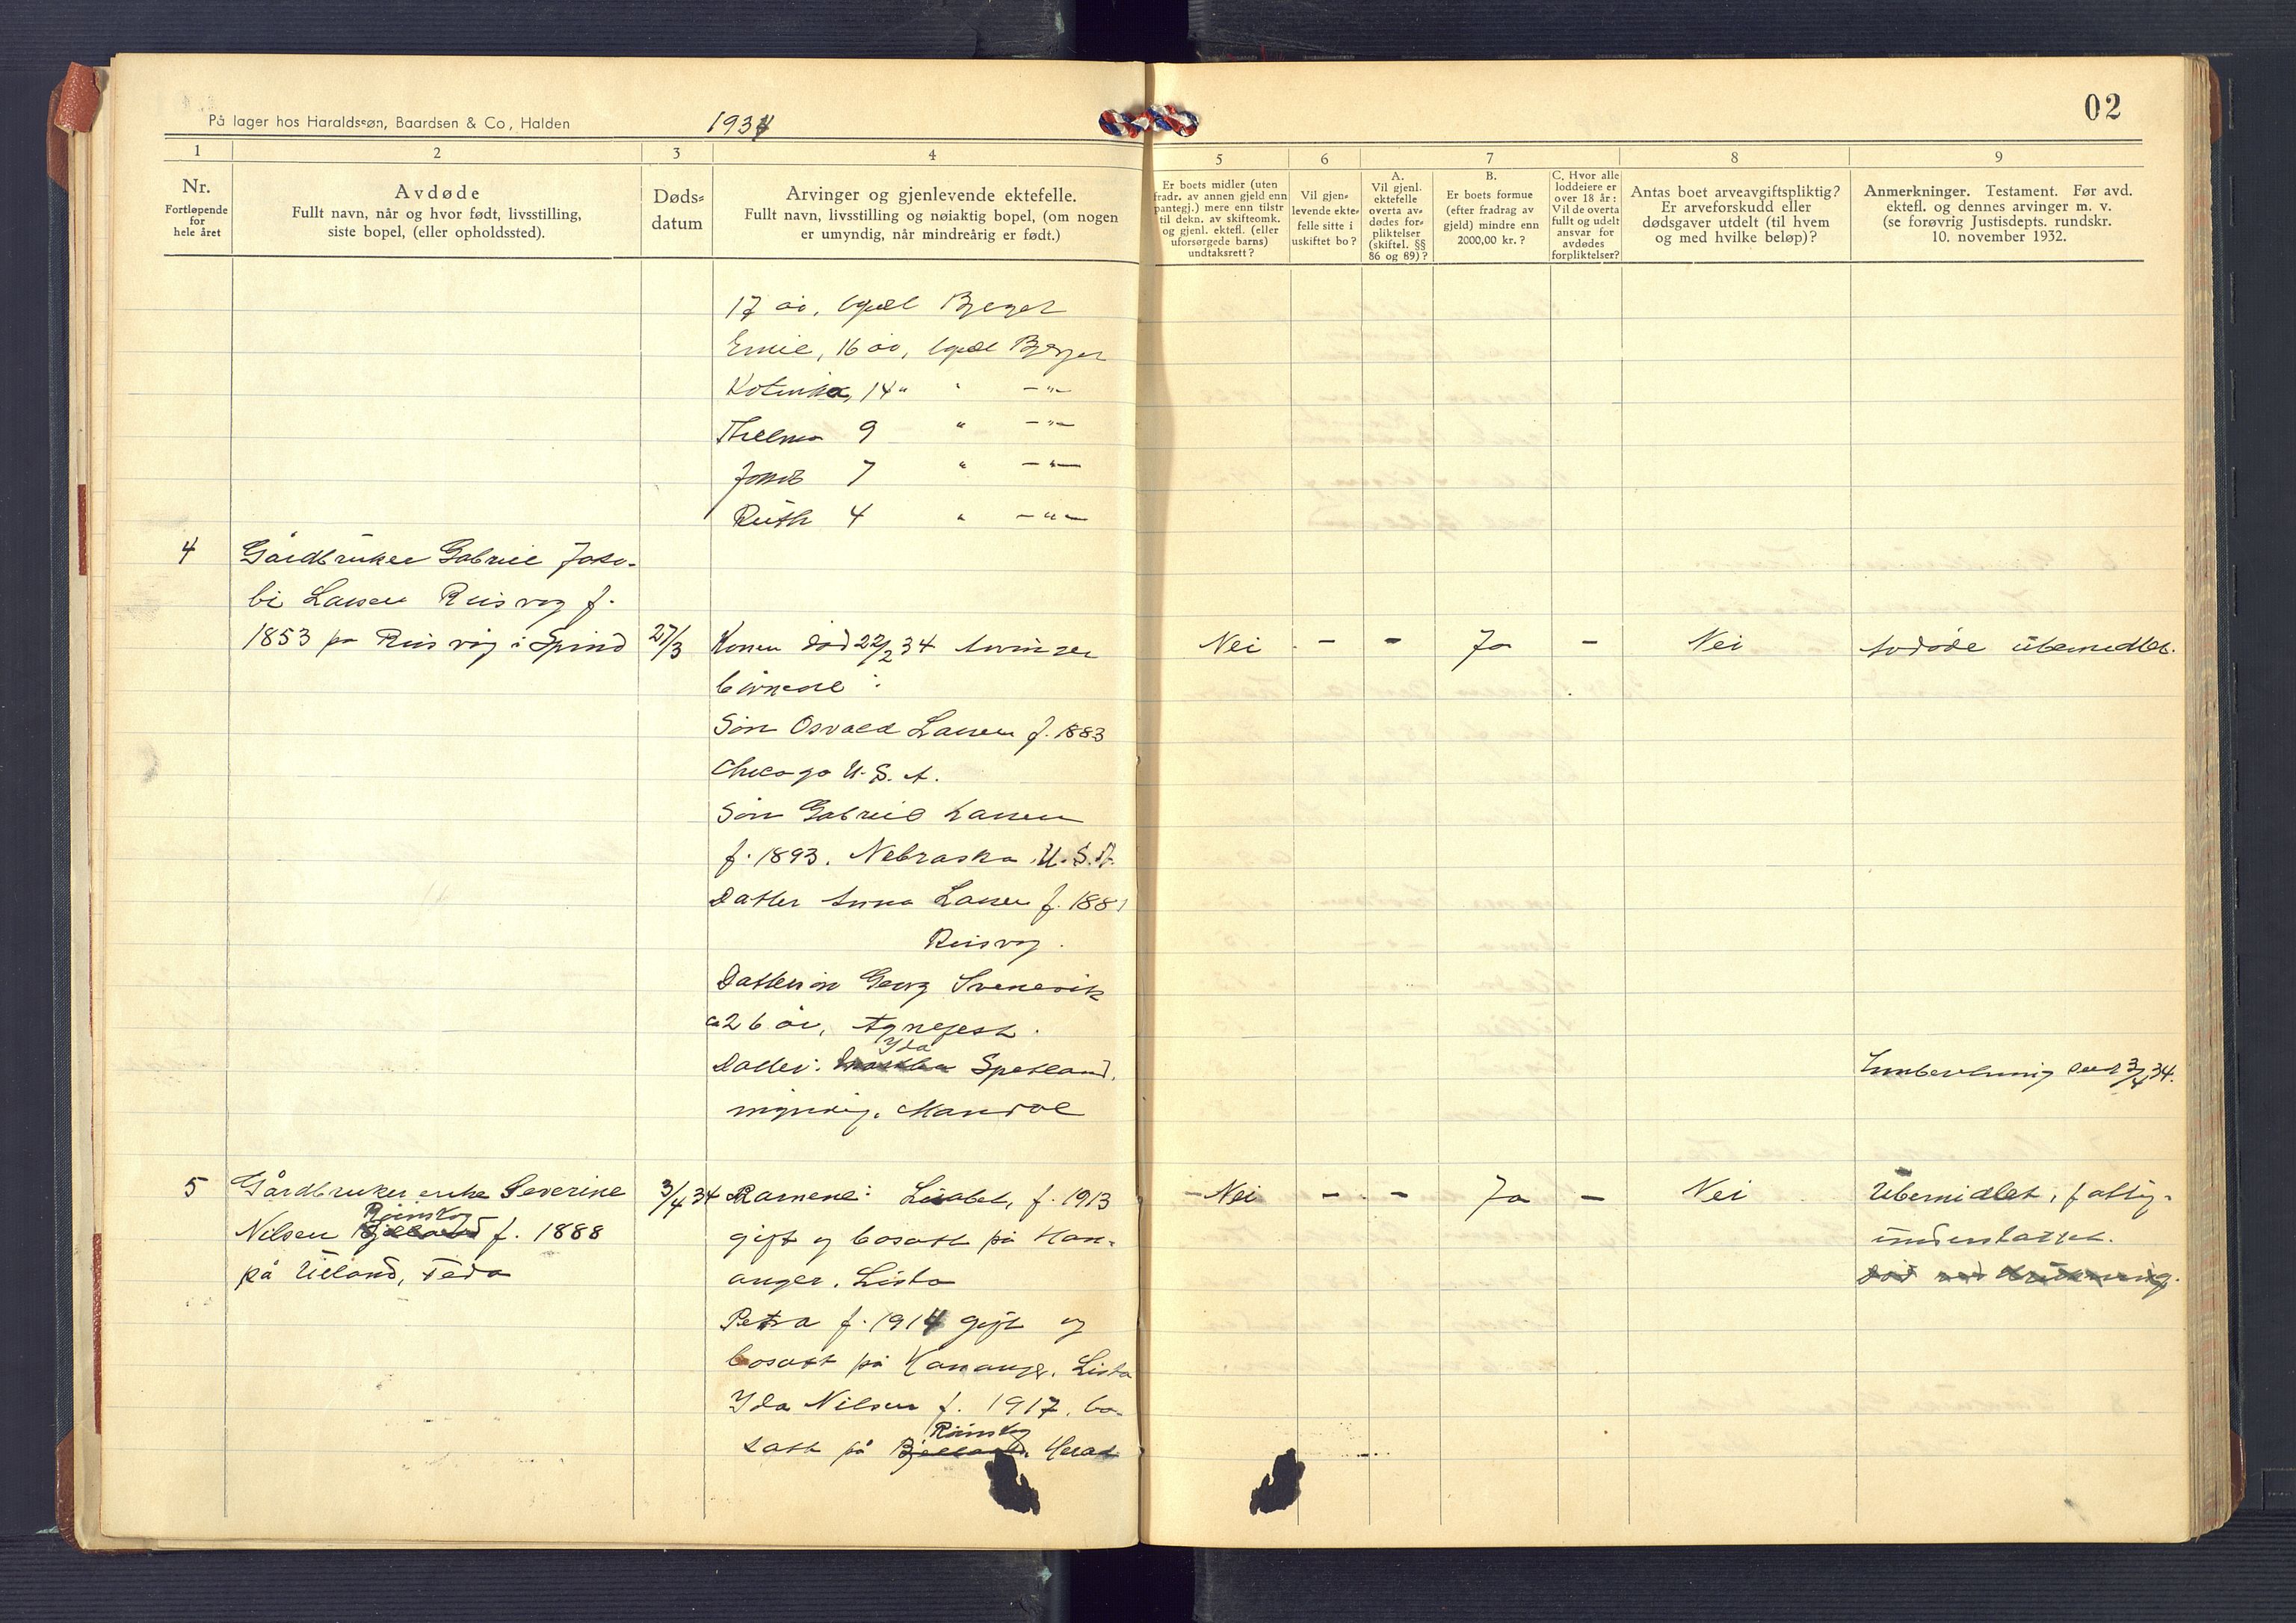 På lager hos Haraldssøn, Baardsen & Co, Halden
1934
02
1
2
3
4
5
6
7
8
9
Nr.
Fortløpende
for
hele året
Avdøde
Fullt navn, når og hvor født, livsstilling,
siste bopel, (eller opholdssted).
Døds=
datum
Arvinger og gjenlevende ektefelle.
Fullt navn, livsstilling og nøiaktig bopel, (om nogen
er umyndig, når mindreårig er født.)
Er boets midler (uten
fradr. av annen gjeld enn
pantegj.) mere enn tilstr
til dekn. av skifteomk.
og gjenl. ektefl. (eller
uforsørgede barns)
undtaksrett?
Vil gjen=
levende ekte=
felle sitte i
uskiftet bo?
A.
Vil gjenl.
ektefelle
overta av=
dødes for=
pliktelser
(skiftel. §§
86 og 89)?
B.
Er boets formue
(efter fradrag av
gjeld) mindre enn
2000,00 kr.?
C. Hvor alle
loddeiere er
over 18 år:
Vil de overta
fullt og udelt
ansvar for
avdødes
forpliktelser?
Antas boet arveavgiftspliktig?
Er arveforskudd eller
dødsgaver utdelt (til hvem
og med hvilke beløp)?
Anmerkninger. Testament. Før avd.
ektefl. og dennes arvinger m. v.
(se forøvrig Justisdepts. rundskr.
10. november 1932.
17 år,
16 år,
14 " " - " -
Thelma 9 " - " -
7 " - " -
Ruth 4 " - " -
4
Gårdbruker Gabriel Jako-
bi Larsen Risvåg f.
1853 på Risvåg i Spind
27/3
Konen død 22/2 34 Arvinger
børnene:
Søn Osvald Larsen f. 1883
Chicago U.S.A.
Søn Gabriel Larsen
f. 1893. Nebraska. U.S.A.
Datter Anna Larsen f. 1881
Risvåg.
Dattersøn Georg Svenevik
ca 26 år, Agnefest.
Ida
Datter: Spetland,
myndig. Mandal
Nei - - Ja - Nei
Avdøde ubemidlet.
Innberetning 3/4 34.
5
Gårdbruker enke Severine
Nilsen Bjelland f. 1888
på Ueland, Feda
3/4 34
Barnene: Lisabet, f. 1913
gift og bosatt på Han-
anger. Lista
Petra f. 1914 gift og
bosatt på Hananger. Lista
Ida Nilsen f. 1917. bo-
satt på Bjelland. Herad
- Nei - - Ja - Nei
Ubemidlet, fattig-
understøttet.
død ved drukning.